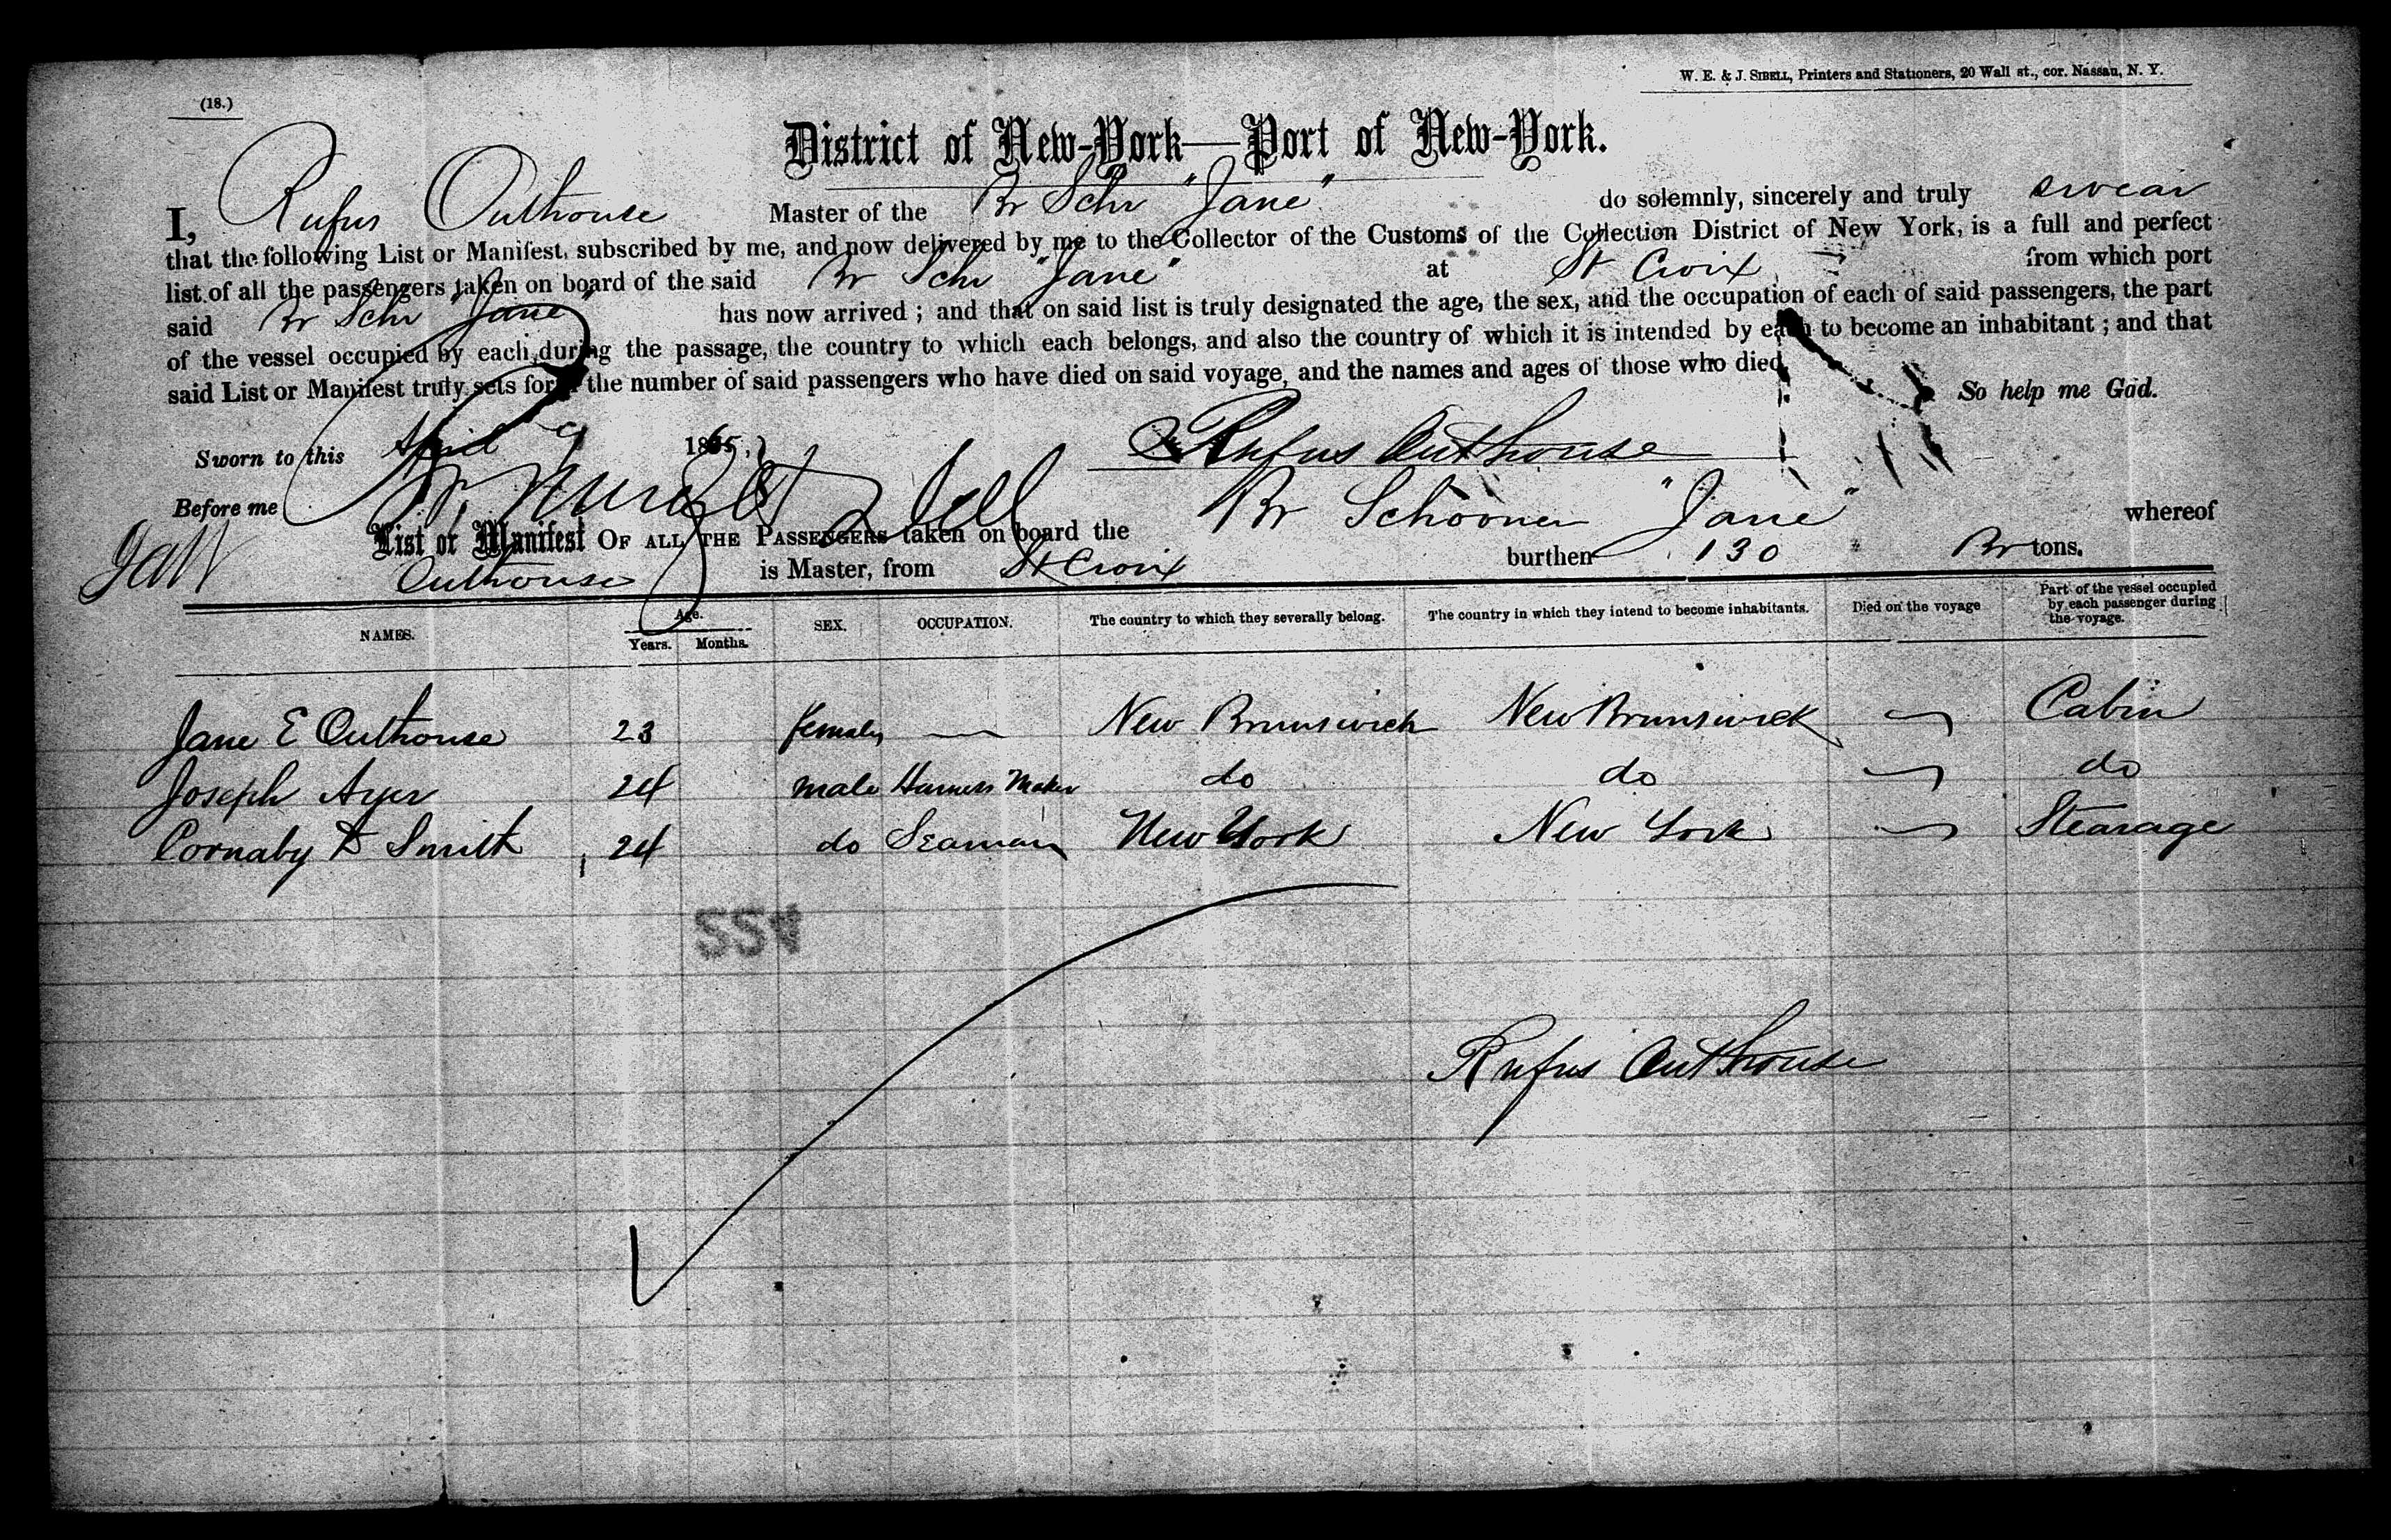 (18.)
W. E. & J. SIBELL, Printers and Stationers, 20 Wall st., cor. Nassau, N. Y.
District of New-York—Port of New-York.
I, Rufus Outhouse Master of the Br Schr "Jane" do solemnly, sincerely and truly swear
that the following List or Manifest, subscribed by me, and now delivered by me to the Collector of the Customs of the Collection District of New York, is a full and perfect
list of all the passengers taken on board of the said Br Schr "Jane" at St Croix from which port
said Br Schr "Jane" has now arrived ; and that on said list is truly designated the age, the sex, and the occupation of each of said passengers, the part
of the vessel occupied by each during the passage, the country to which each belongs, and also the country of which it is intended by each to become an inhabitant ; and that
said List or Manifest truly sets forth the number of said passengers who have died on said voyage, and the names and ages of those who died.
So help me God.
Sworn to this April 9 1865, Rufus Outhouse
Before me
List or Manifest OF ALL THE PASSENGERS taken on board the Br Schooner "Jane" whereof
Outhouse is Master, from St Croix burthen 130 Br tons.
NAMES. Age. Years. Months. SEX. OCCUPATION. The country to which they severally belong. The country in which they intend to become inhabitants. Died on the voyage Part of the vessel occupied by each passenger during the voyage.
Jane E Outhouse 23 female — New Brunswick New Brunswick — Cabin
Joseph Ayer 24 male Harness Maker do do — do
Cornaby D Smith 24 do Seaman New York New York — Stearage
Rufus Outhouse